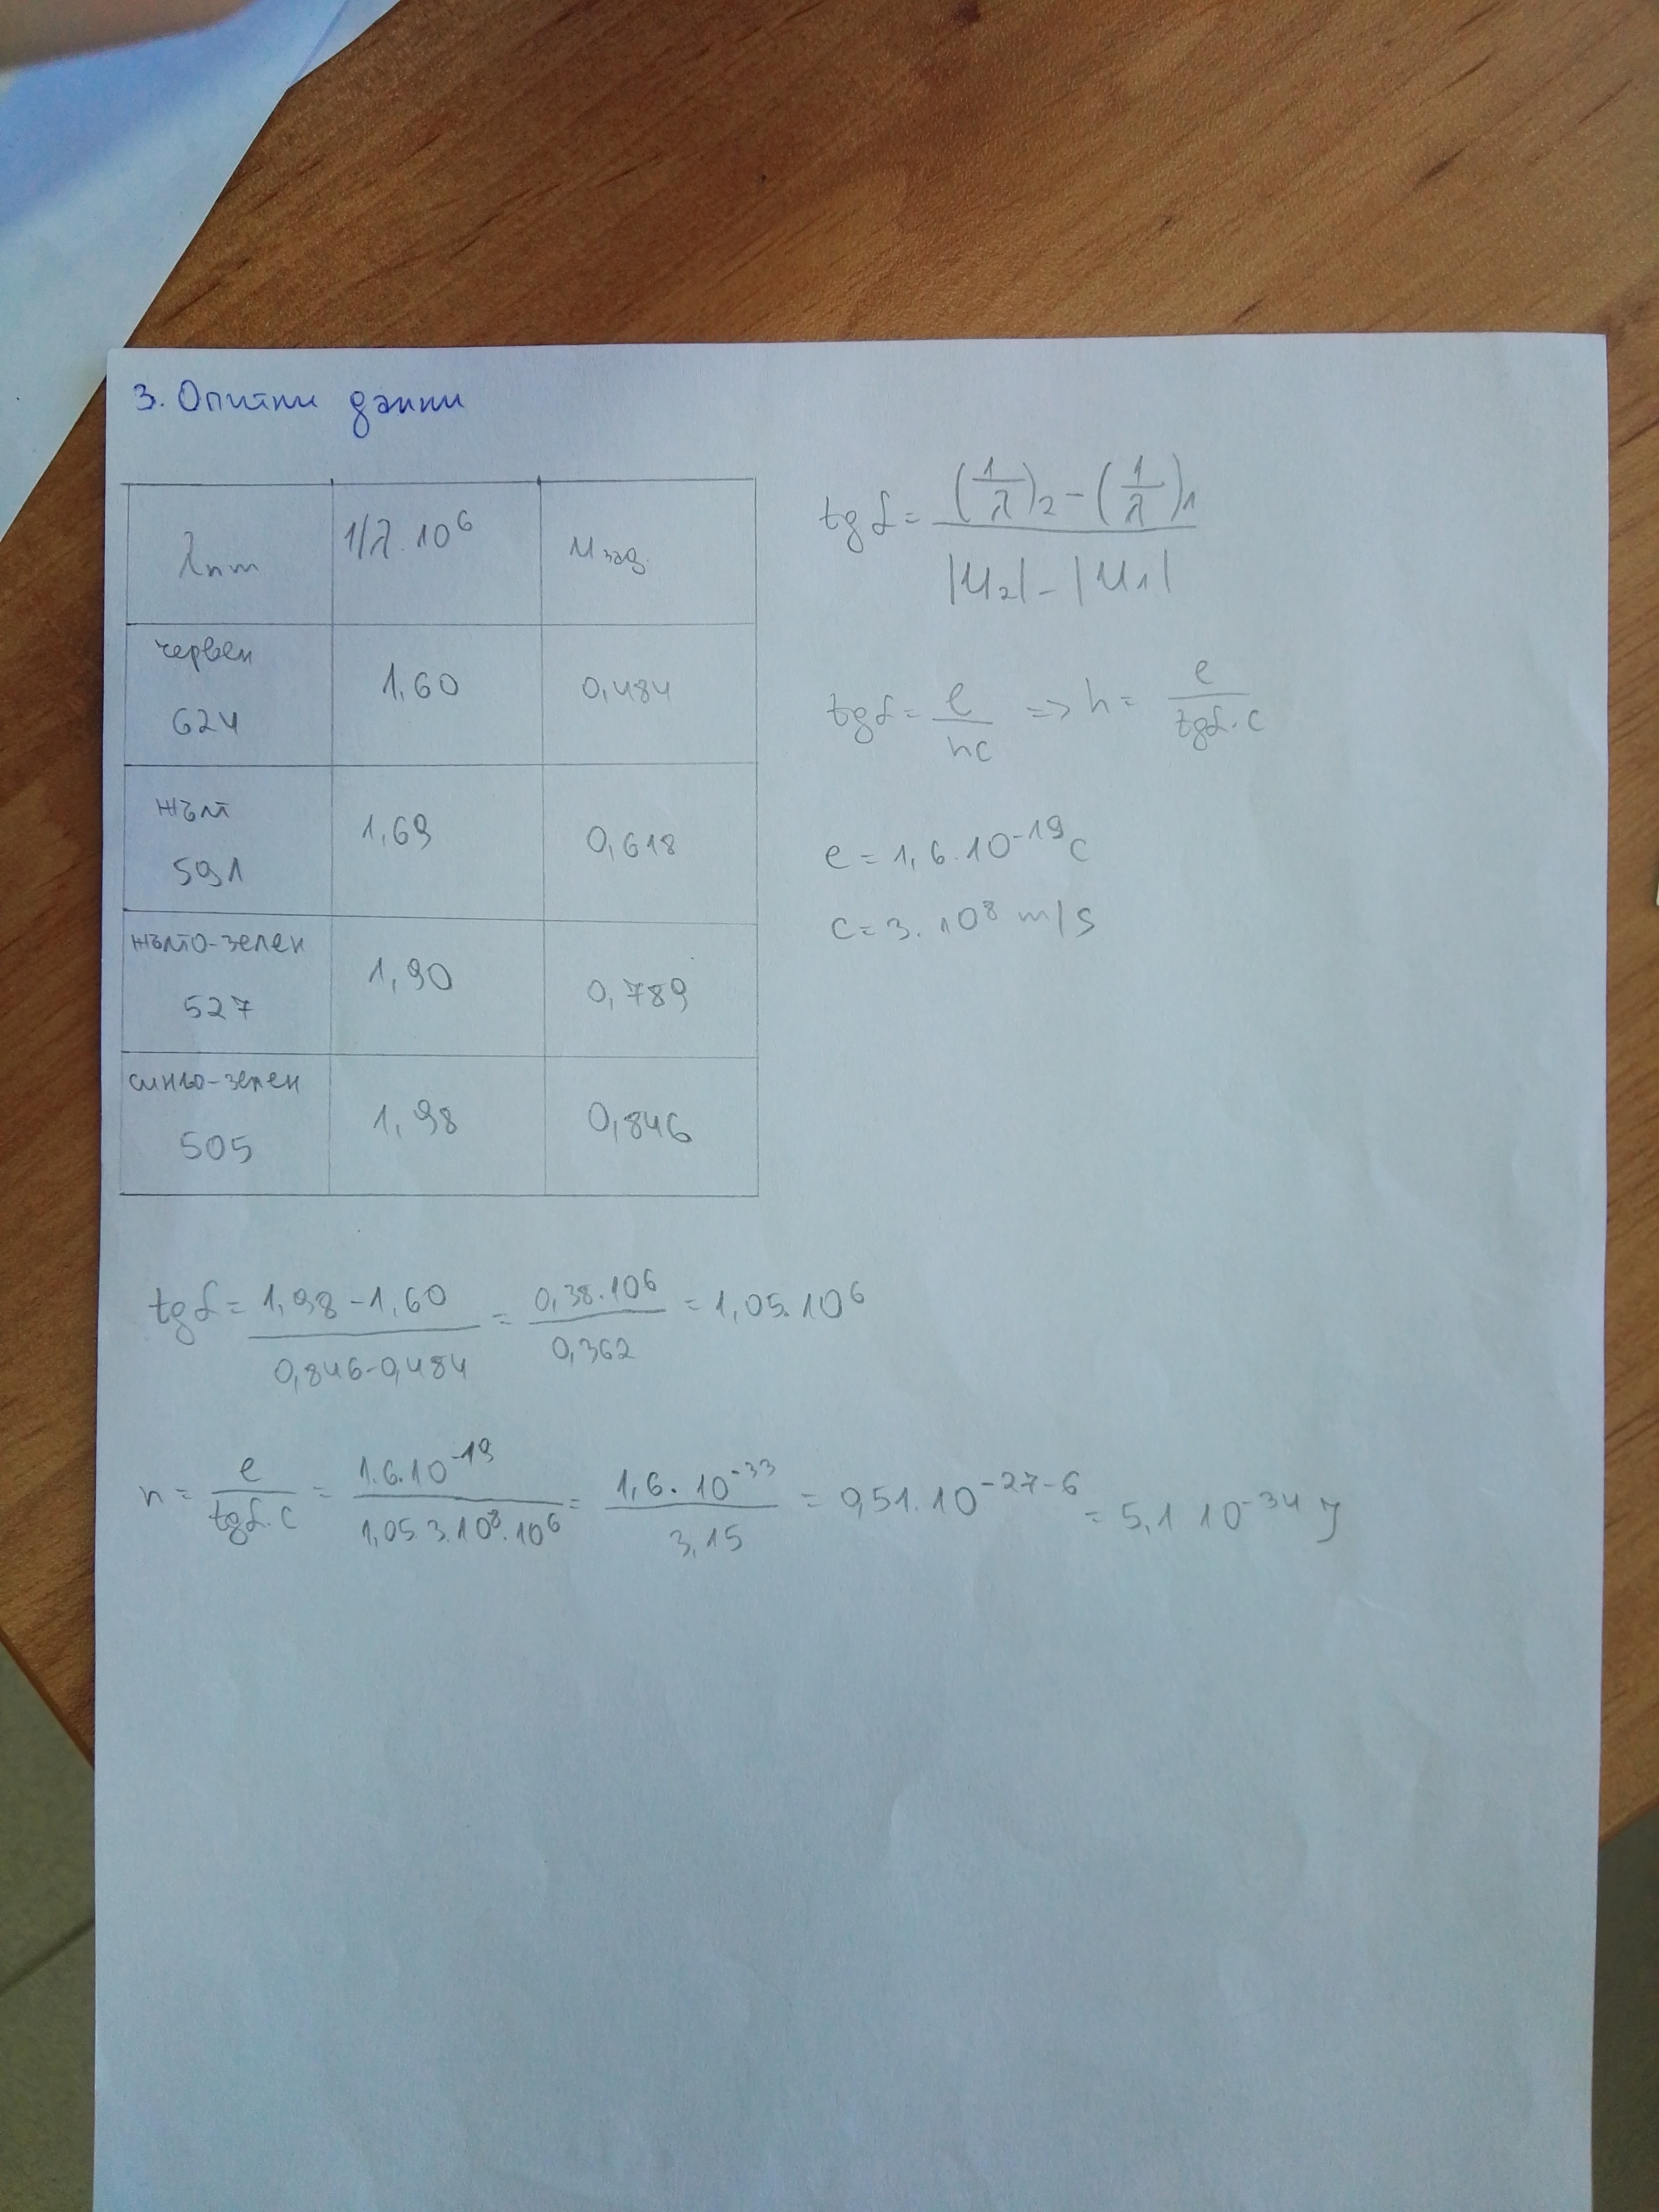 3. Опитни данни
λnm 1/λ.10⁶ Uзад.
червен
624 1,60 0,484
жълт
591 1,69 0,618
жълто-зелен
527 1,90 0,789
синьо-зелен
505 1,98 0,846
tgα = ((1/λ)₂ - (1/λ)₁) / (|U₂| - |U₁|)
tgα = e/hc => h = e/(tgα.c)
e = 1,6.10⁻¹⁹C
c = 3.10⁸ m/s
tgα = (1,98 - 1,60)/(0,846-0,484) = (0,38.10⁶)/(0,362) = 1,05.10⁶
h = e/(tgα.c) = (1.6.10⁻¹⁹)/(1,05.3.10⁸.10⁶) = (1,6.10⁻³³)/(3,15) = 0,51.10⁻²⁷⁻⁶ = 5,1 10⁻³⁴ J